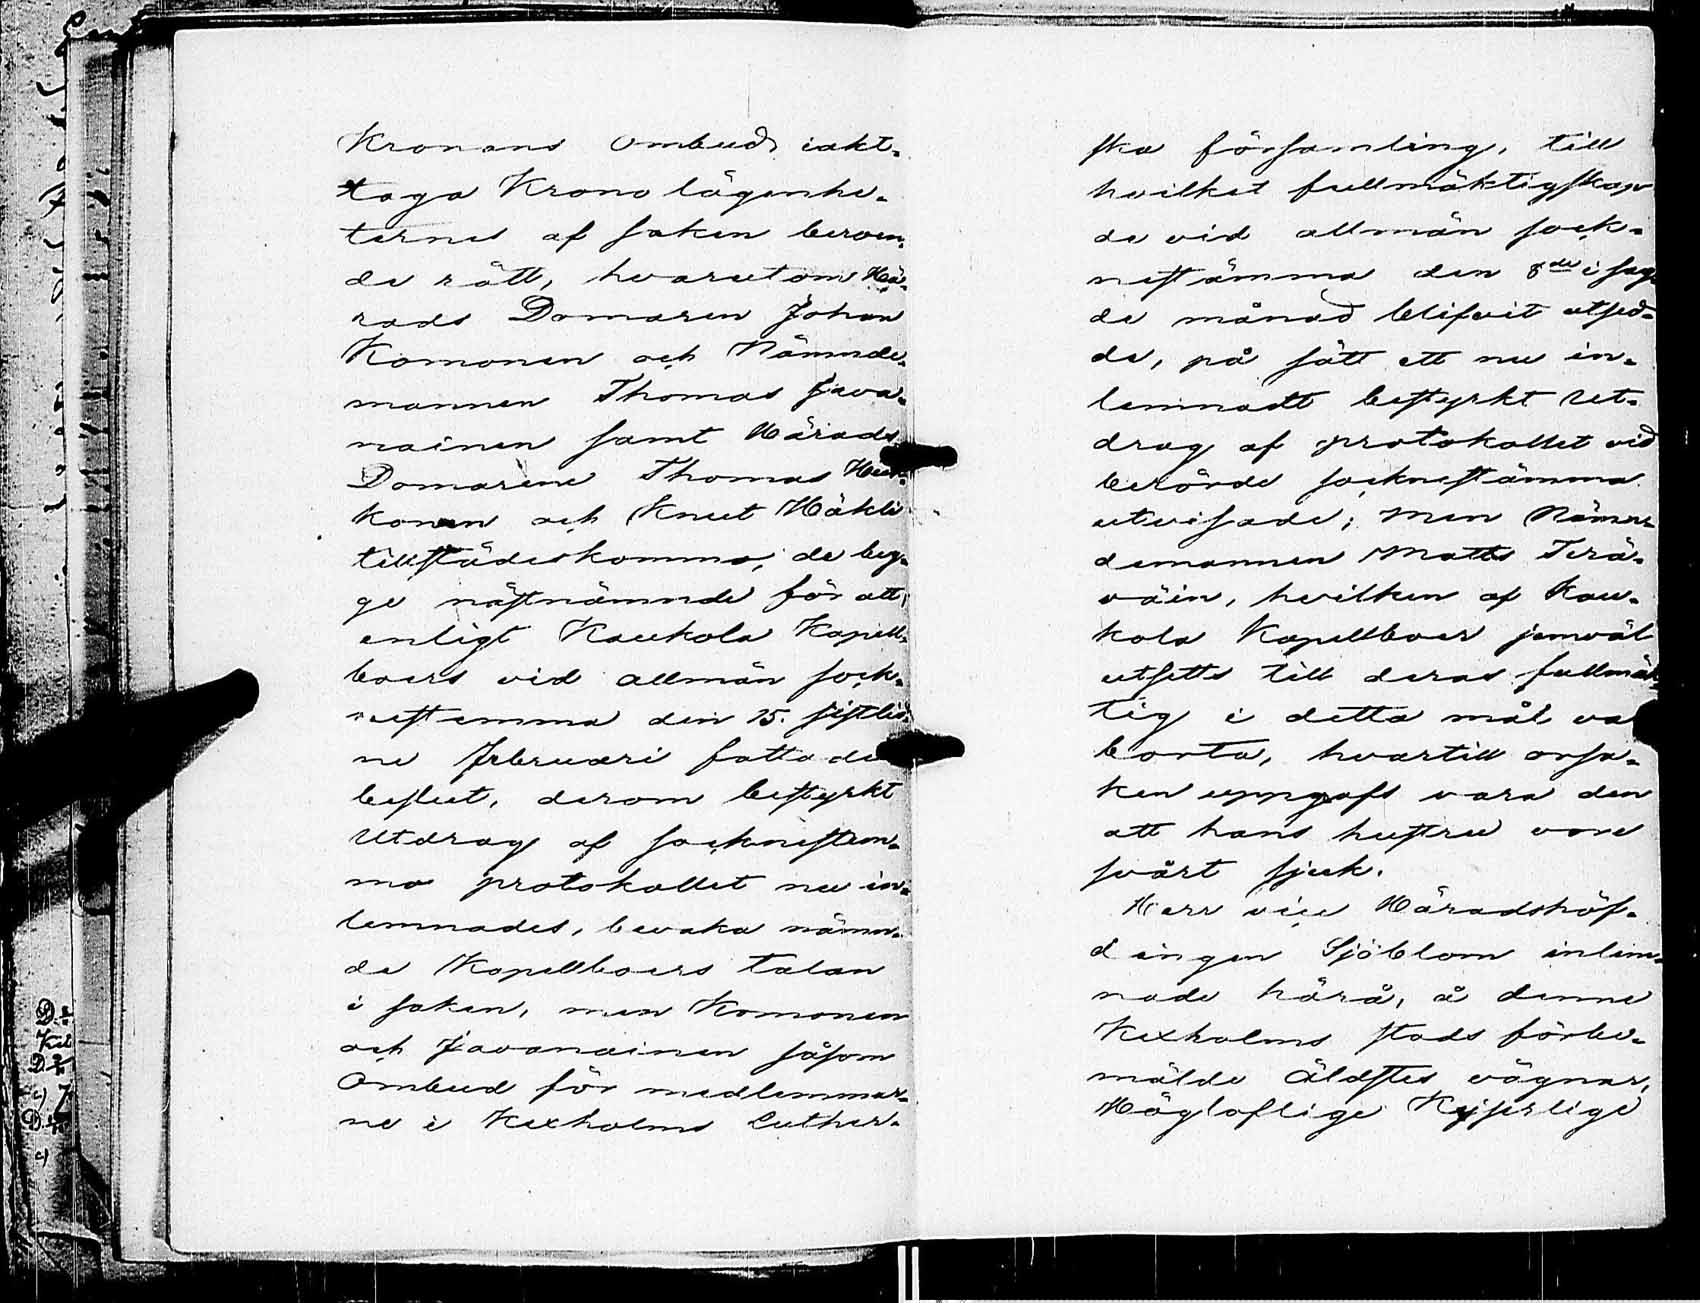 Kronans ombud iakt-
taga Krono lägenhe-
ternes af saken beroen-
de rätt, hvarutom Hä-
rads Domaren Johan
Komonen och Nämnde-
mannen Thomas Java-
nainen samt Härads
Domarene Thomas
konen och Knut Häkli
tillstädeskommo, de beg-
ge nästnämnde för att,
enligt Kaukola Kapell-
boers vid allmän sock-
nestemma den 15. sistlid-
ne Februari fattade
beslut, derom bestyrkt
Utdrag af socknestem-
mo protokollet nu in-
lemnades, bevaka nämn-
de Kapellboers talan
i saken, men Komonen
och Javanainen såsom
Ombud för medlemmar-
ne i Kexholms Luther-
ska församling, till
hvilket fullmäktigskap
de vid allmän sock-
nestämma den 8de i sag-
de månad blifvit utsed-
de, på sätt ett nu in-
lemnadt bestyrkt Ut-
drag af protokollet vid
berörde socknestämma
utvisade; men Nämn-
demannen Matts Terä-
väin, hvilken af Kau-
kola Kapellboer jemväl
utsetts till deras fullmäk-
tig i detta mål va
borta, hvartill orsa-
ken uppgafs vara den
att hans hustru vore
svårt sjuk.
Herr vice Häradshöf-
dingen Sjöblom inlem-
nade härå, å denne
Kexholms stads förbe-
mälde Äldstes vägnar,
Högloflige Kejserlige
D:o
D:o